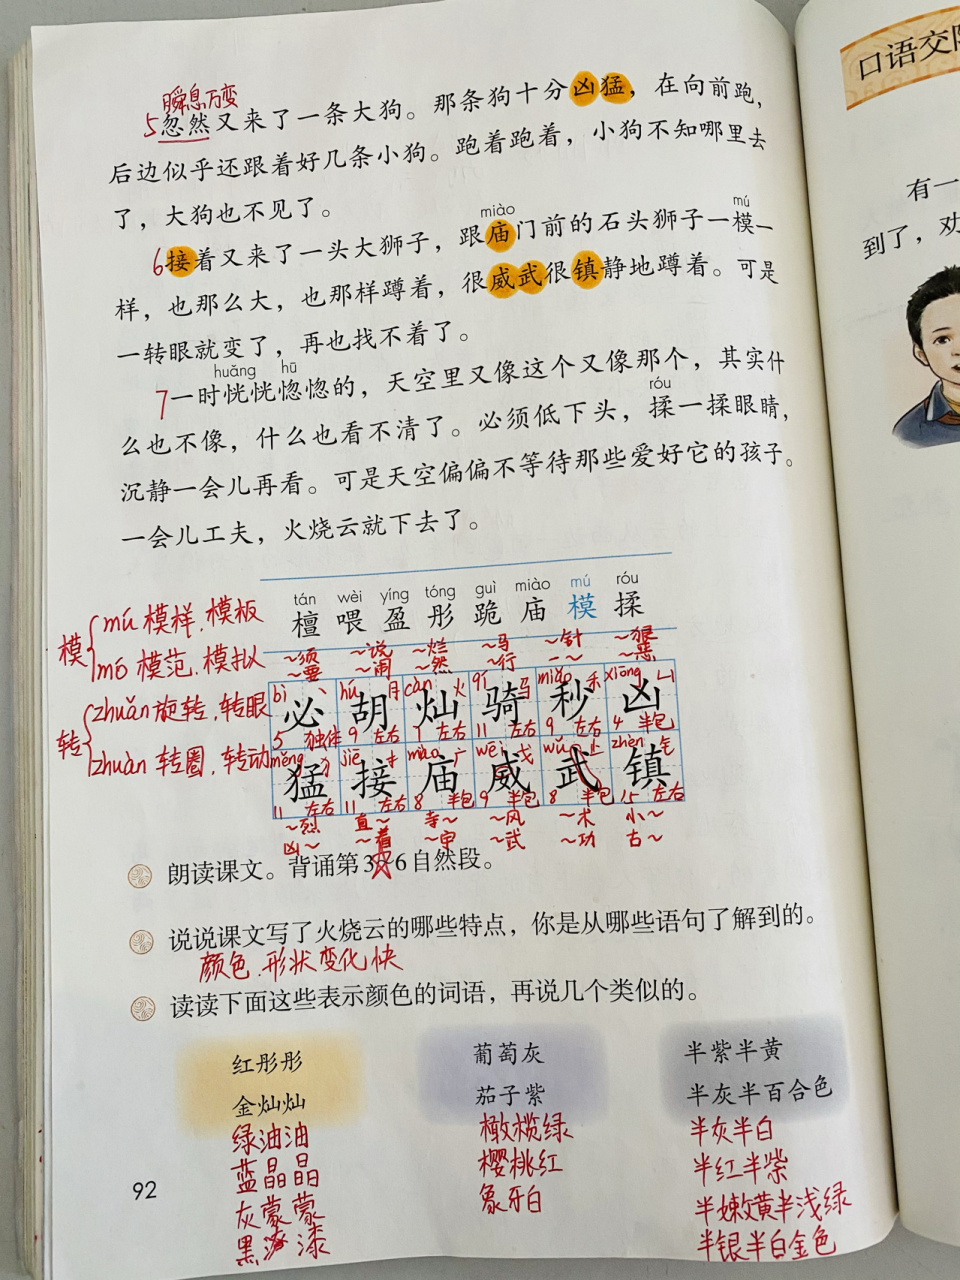 瞬息万变
5忽然又来了一条大狗。那条狗十分凶猛，在向前跑，
后边似乎还跟着好几条小狗。跑着跑着，小狗不知哪里去
了，大狗也不见了。
miào mú
6接着又来了一头大狮子，跟庙门前的石头狮子一模一
样，也那么大，也那样蹲着，很威武很镇静地蹲着。可是
一转眼就变了，再也找不着了。
huǎng hū
7一时恍恍惚惚的，天空里又像这个又像那个，其实什
róu
么也不像，什么也看不清了。必须低下头，揉一揉眼睛，
沉静一会儿再看。可是天空偏偏不等待那些爱好它的孩子。
一会儿工夫，火烧云就下去了。
tán wèi yíng tóng guì miào mú róu
檀 喂 盈 彤 跪 庙 模 揉
模 mú 模样.模板
mó 模范.模拟
转 zhuǎn 旋转.转眼
zhuàn 转圈.转动
~须 ~说 ~烂 ~马 ~针 ~狠
~要 ~闹 ~然 ~行 一~ ~恶
bì 丶 hú 月 càn 火 qí 马 miǎo 禾 xiōng 凵
必 胡 灿 骑 秒 凶
5 独体 9 左右 7 左右 11 左右 9 左右 4 半包
měng 犭 jiē 扌 miào 广 wēi 戈 wǔ 止 zhèn 钅
猛 接 庙 威 武 镇
11 左右 11 左右 8 半包 9 半包 8 半包 15 左右
~烈 直~ 寺~ ~风 ~术 小~
凶~ ~着 ~宇 ~武 ~功 古~
朗读课文。背诵第3~6自然段。
说说课文写了火烧云的哪些特点，你是从哪些语句了解到的。
颜色.形状变化快
读读下面这些表示颜色的词语，再说几个类似的。
红彤彤 葡萄灰 半紫半黄
金灿灿 茄子紫 半灰半百合色
绿油油 橄榄绿 半灰半白
蓝晶晶 樱桃红 半红半紫
灰蒙蒙 象牙白 半嫩黄半浅绿
黑漆漆 半银半白金色
92
口语交际
有一
到了，劝